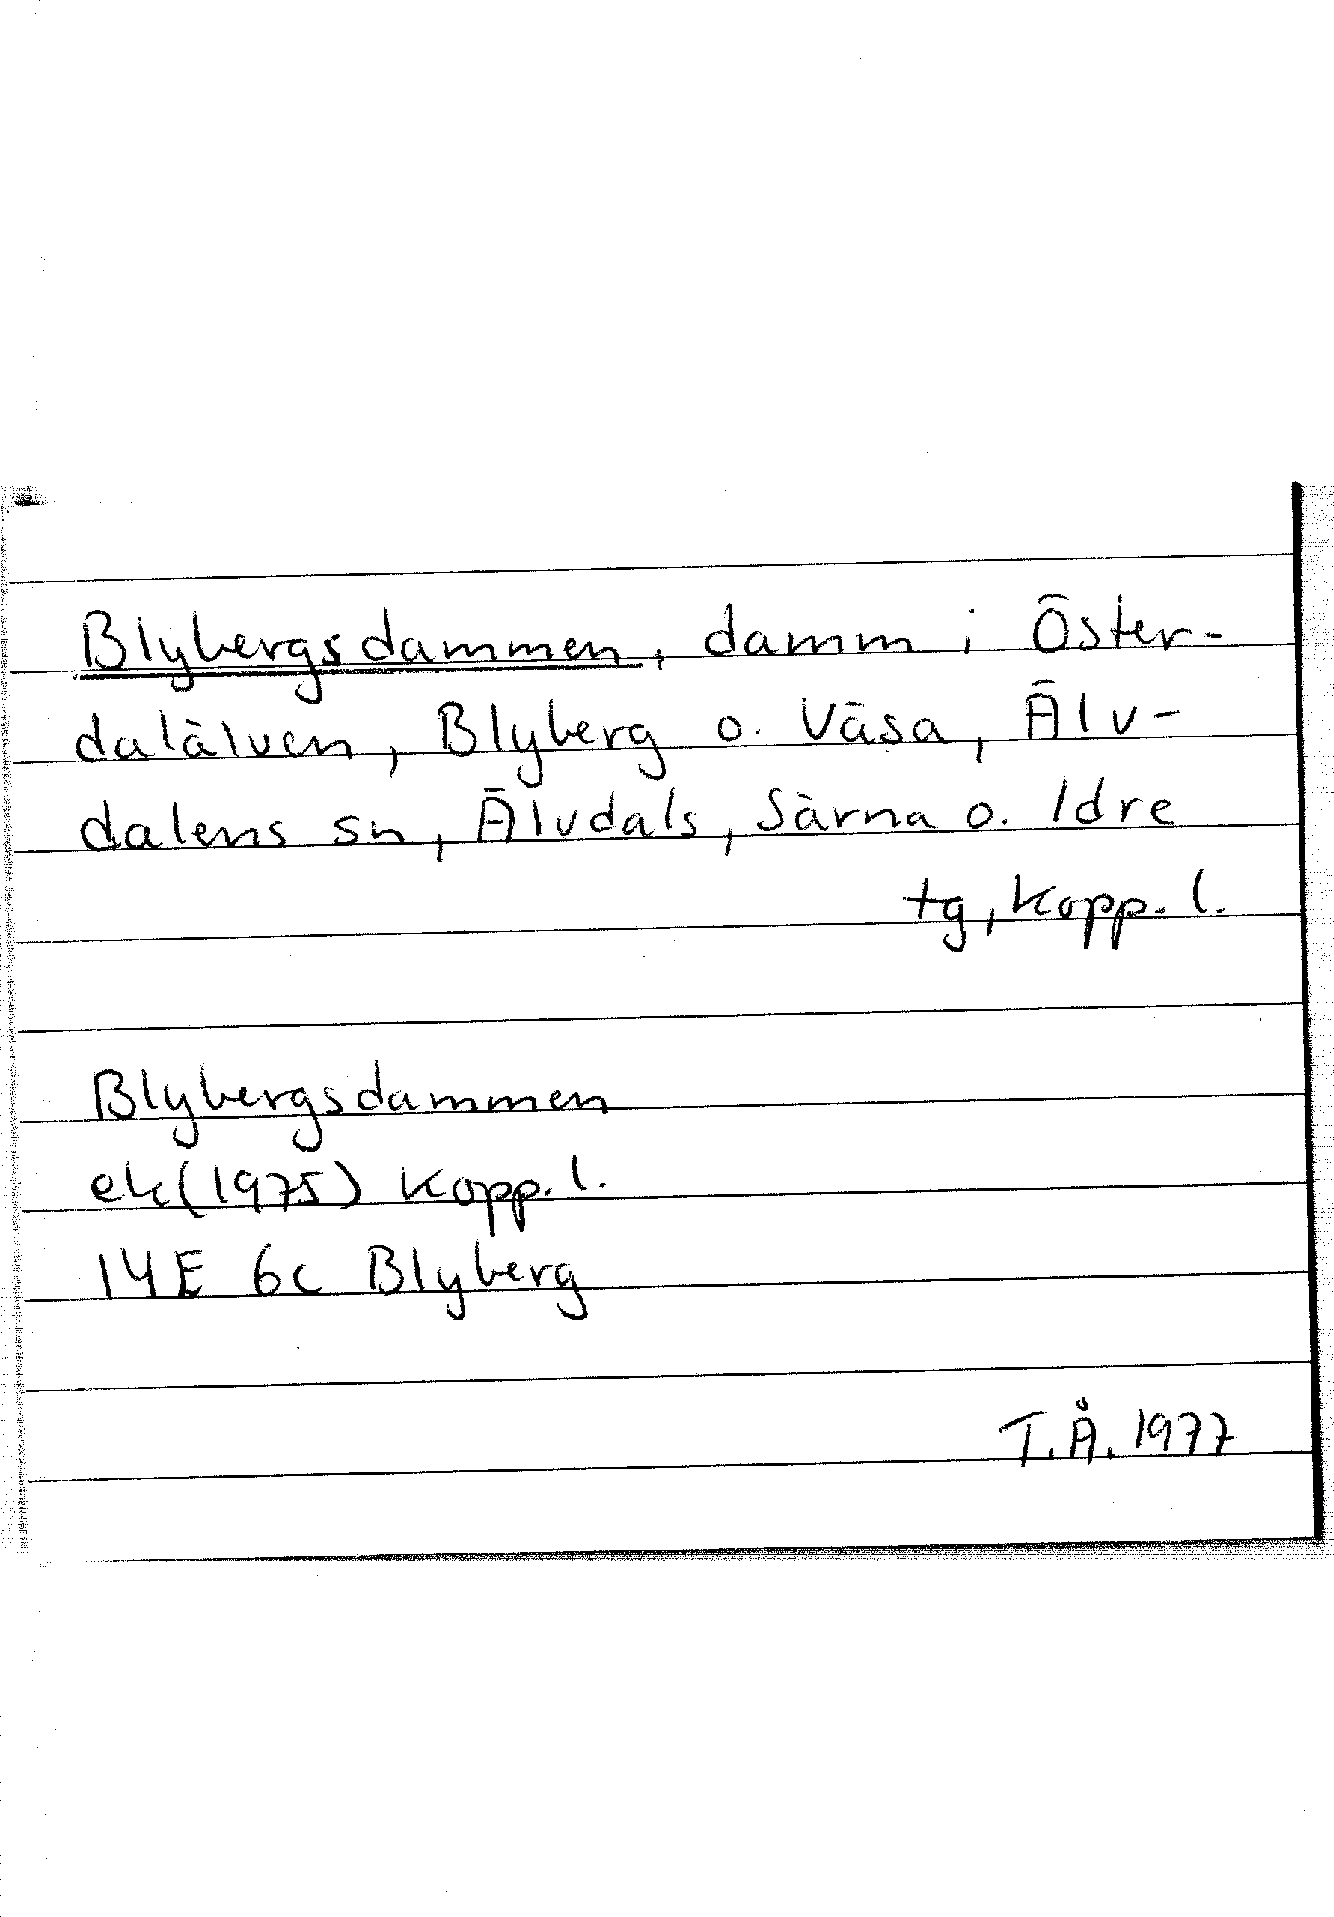 Blybergsdammen, damm i Öster-
dalälven, Blyberg o. Väsa, Älv-
dalens sn, Älvdals, Särna o. Idre
tg, Kopp. l.
Blybergsdammen
ek(1975) Kopp. l.
14E 6c Blyberg
T.Å. 1977